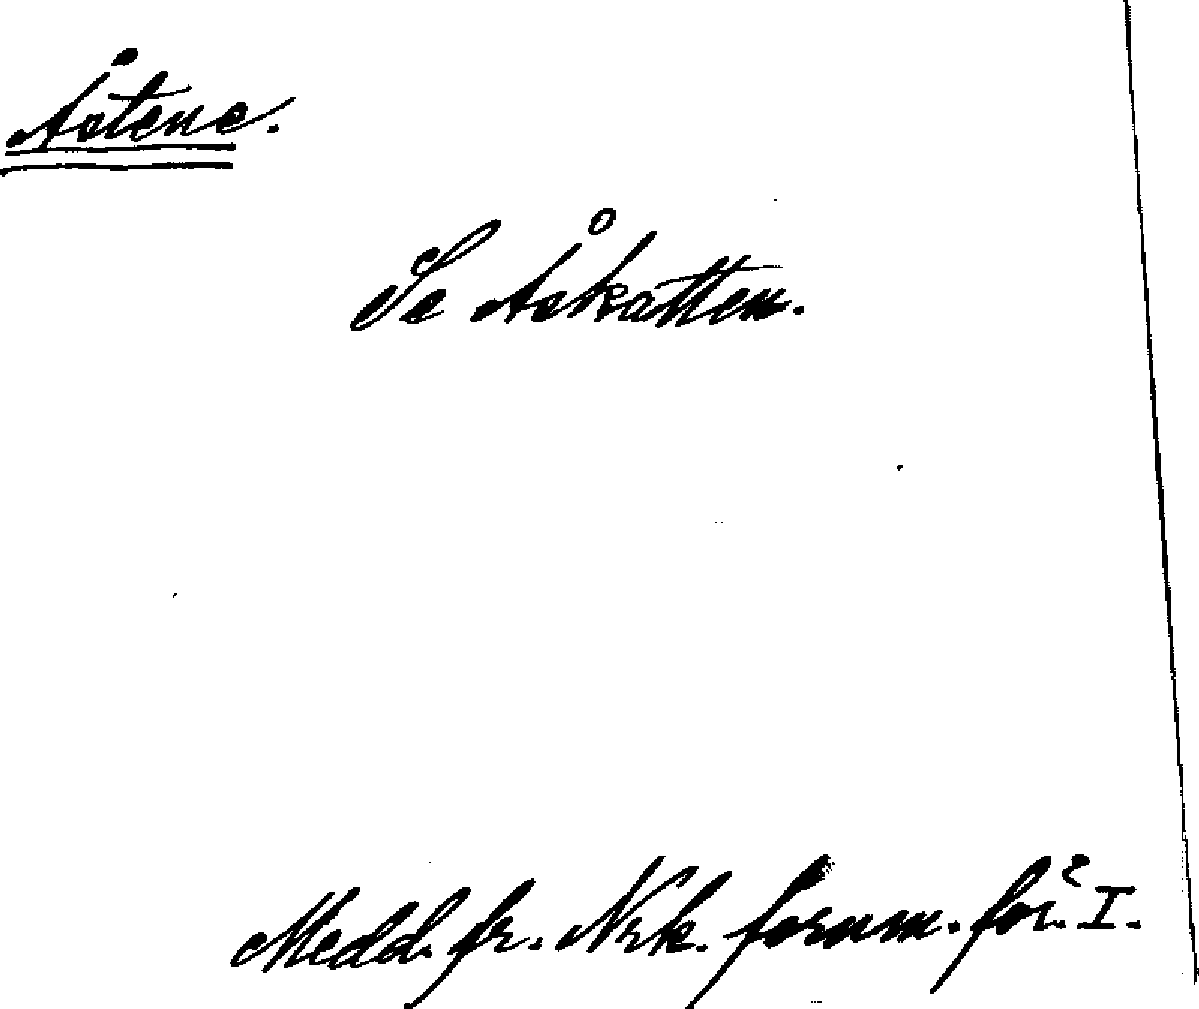 Åstene.
Se Åskatten.
Medd. fr. Nrk. fornm. för. I.